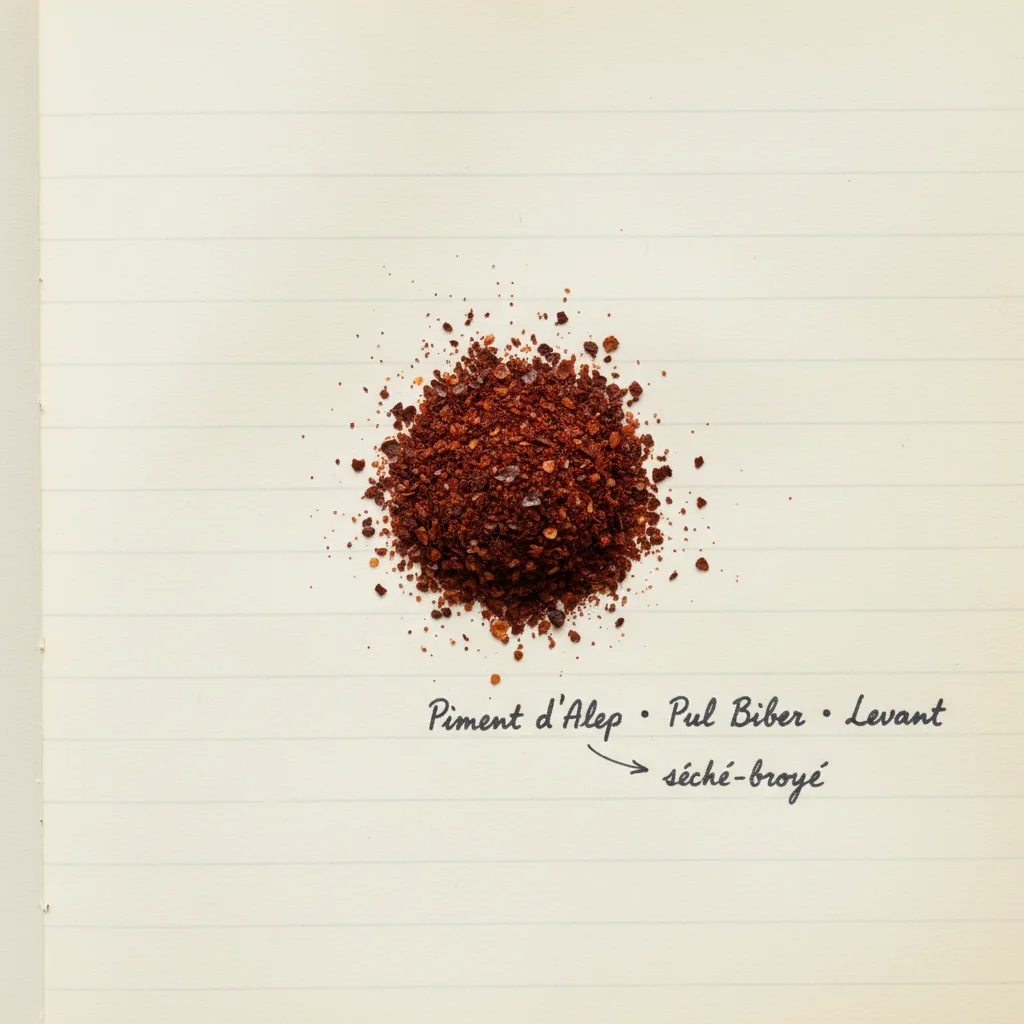 Piment d'Alep • Pul Biber • Levant
séché-broyé